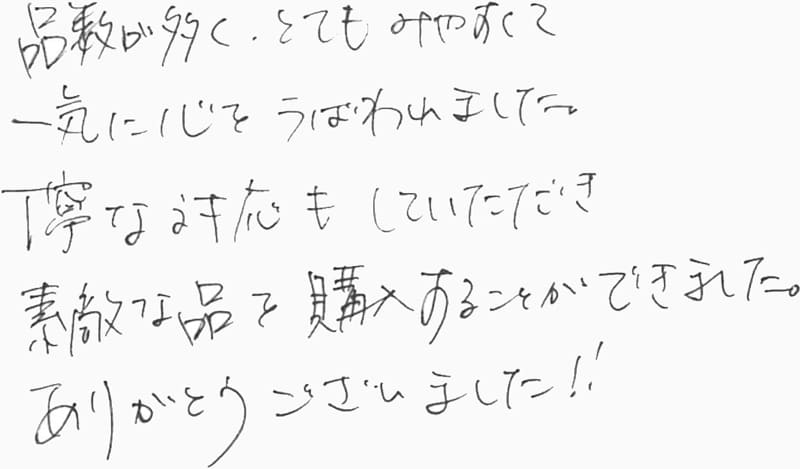 品数が多く、とてもみやすくて
一気に心をうばわれました。
丁寧な対応もしていただき
素敵な品を購入することができました。
ありがとうございました!!